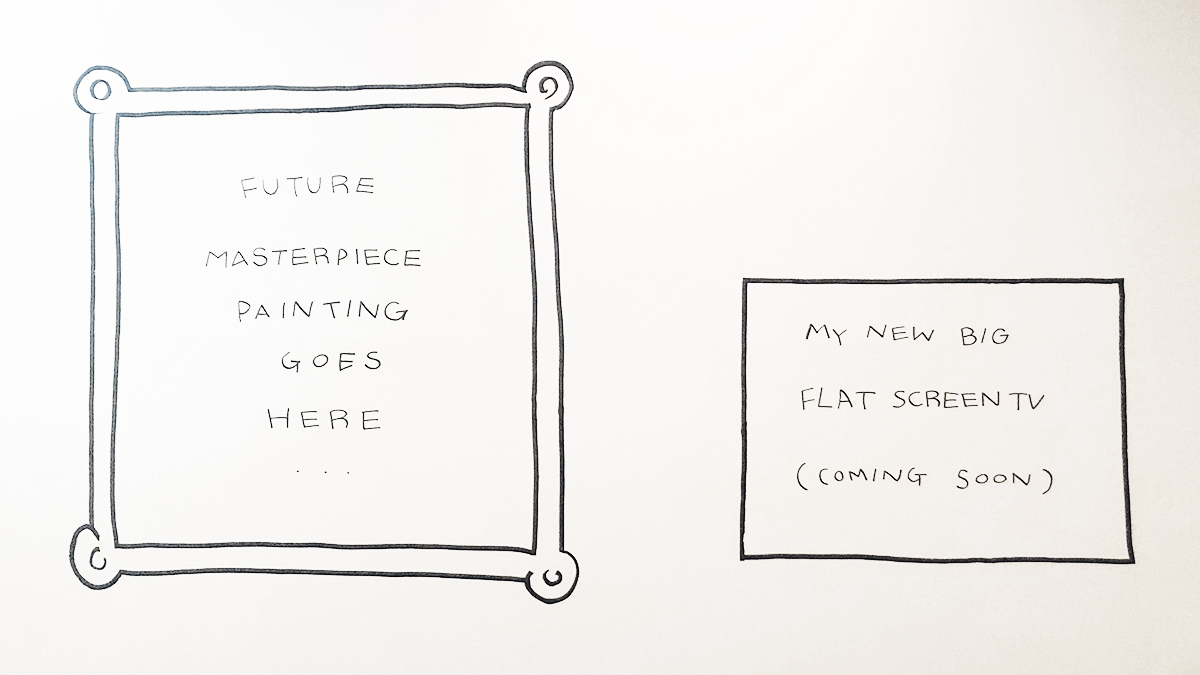 FUTURE
MASTERPIECE
PAINTING
GOES
HERE
...
MY NEW BIG
FLAT SCREEN TV
(COMING SOON)